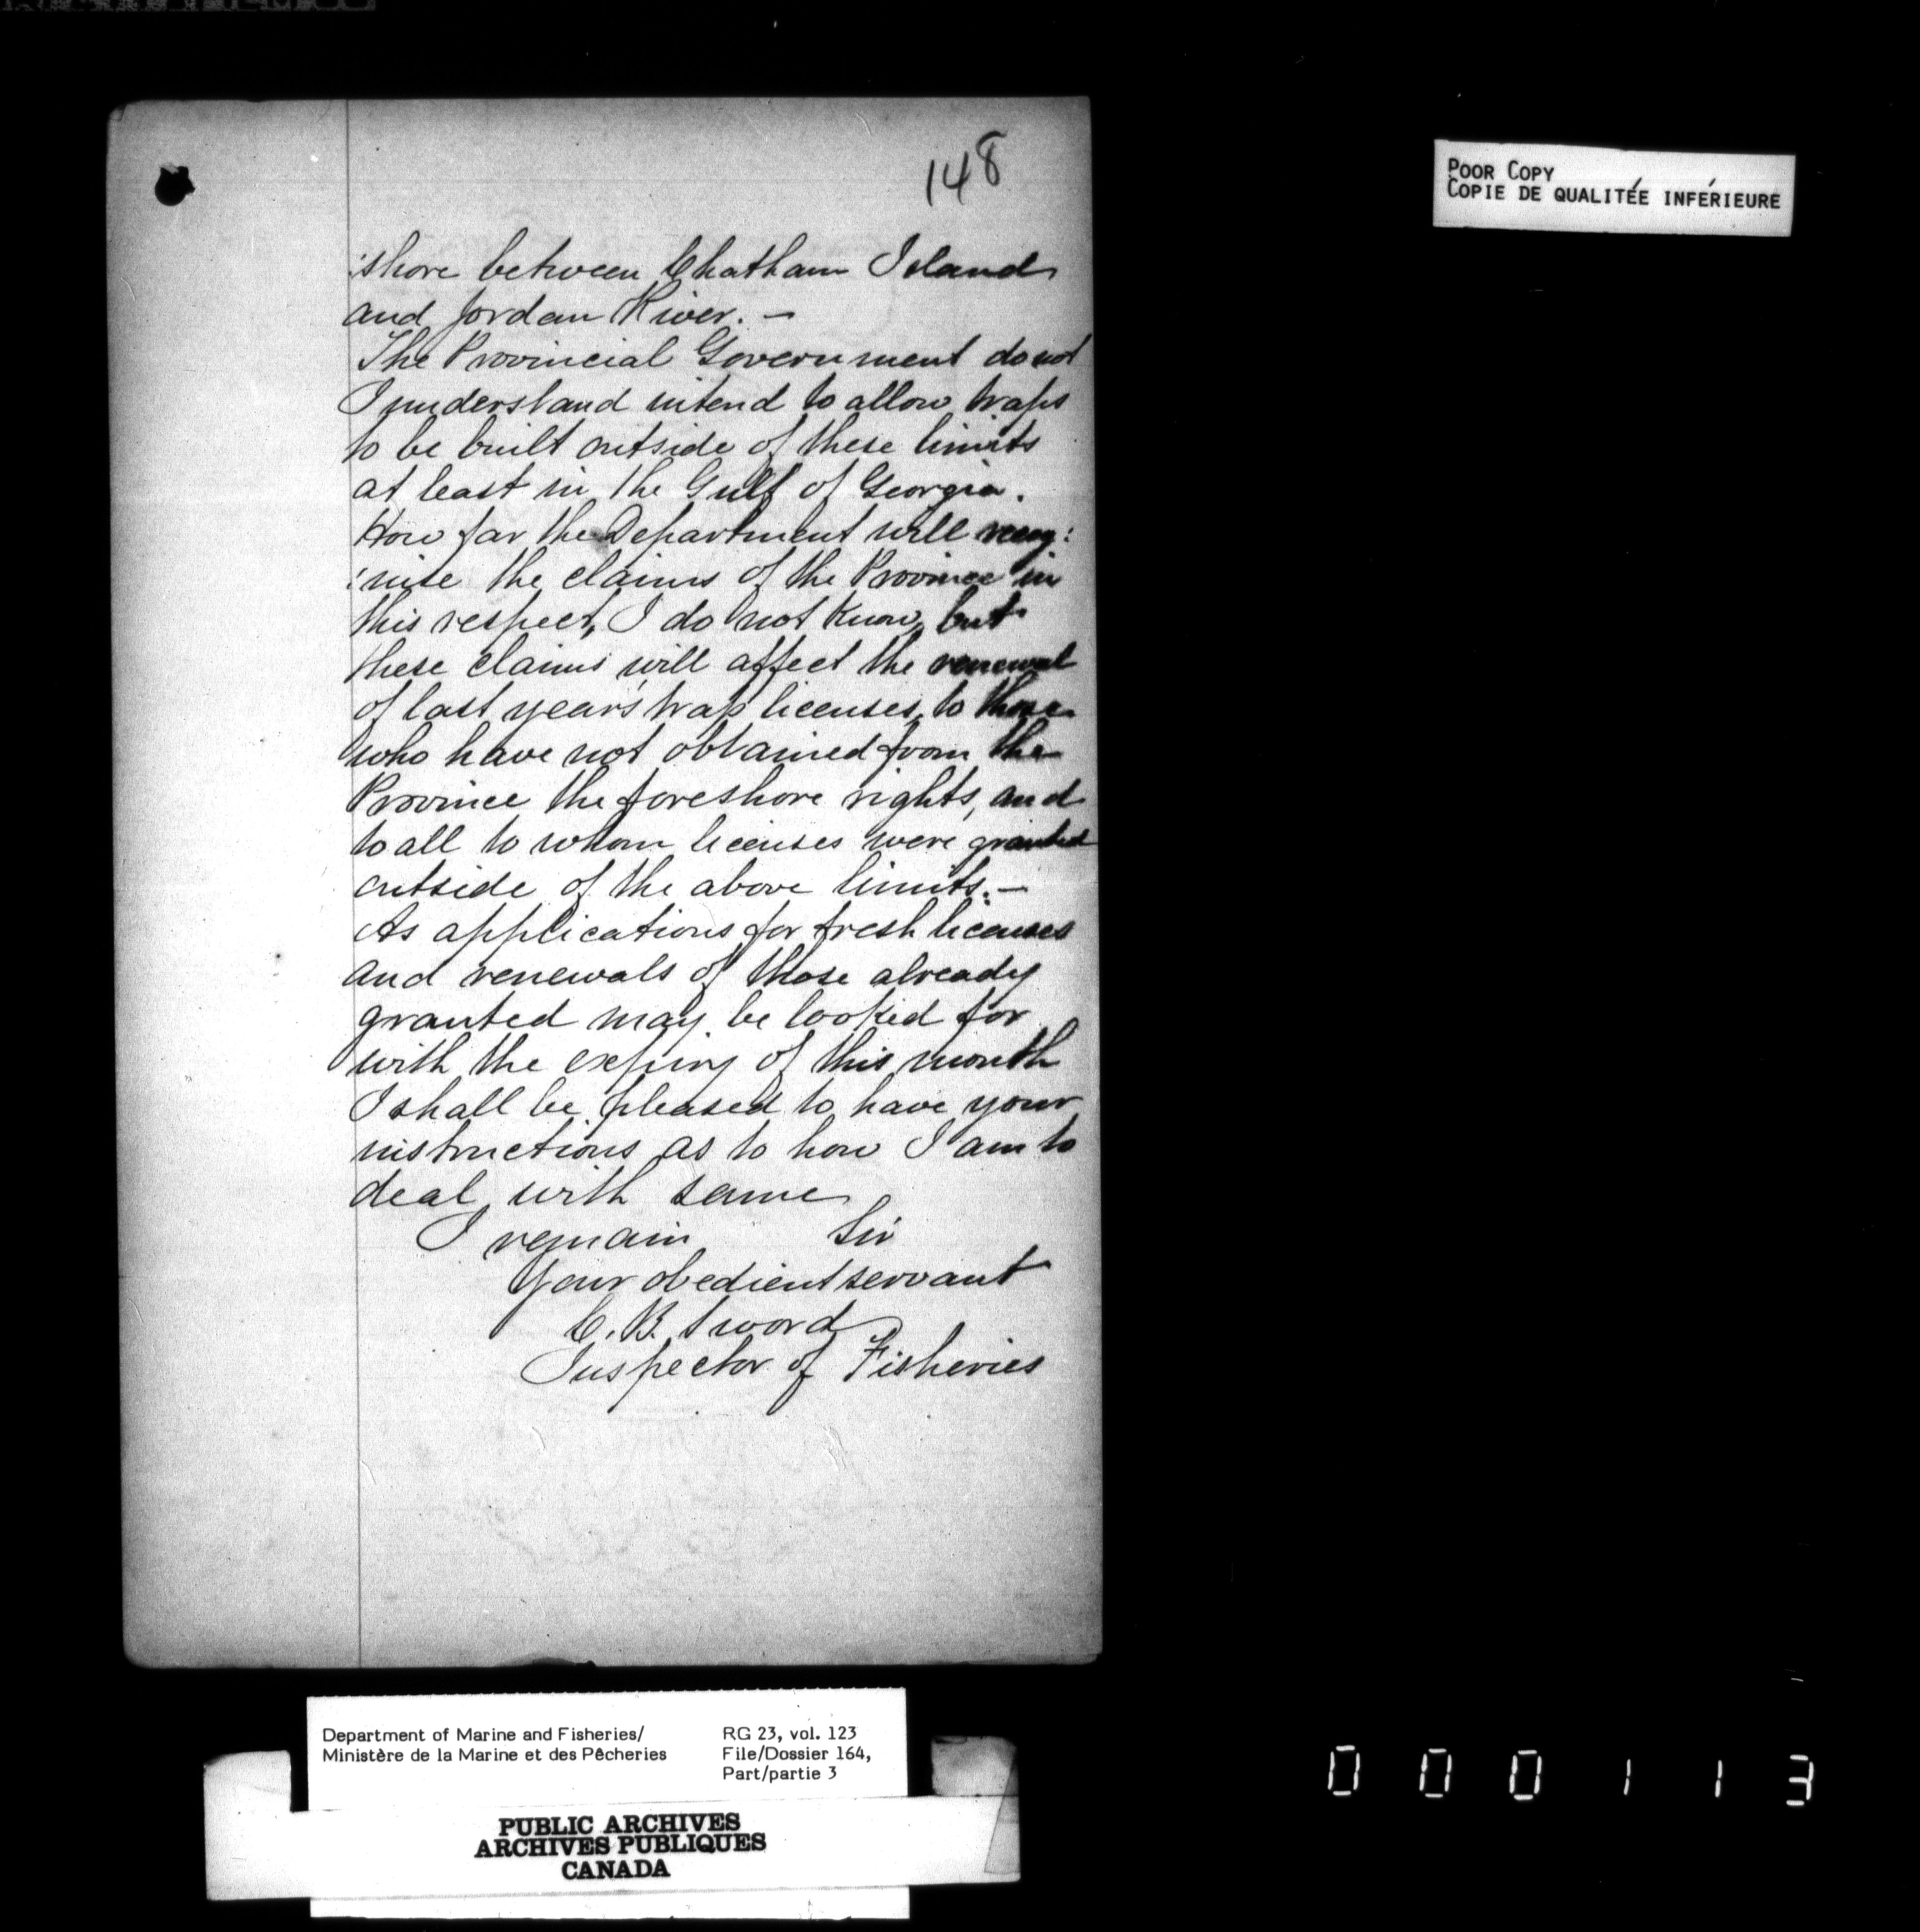 148
POOR COPY
COPIE DE QUALITÉE INFÉRIEURE
:shore between Chatham Island
and Jordan River. —
The Provincial Government do not
I understand intend to allow traps
to be built outside of these limits
at least in the Gulf of Georgia.
How far the Department will recog:
:nise the claims of the Province in
this respect, I do not know, but
these claims will affect the renewal
of last year's trap licenses, to those
who have not obtained from the
Province the foreshore rights, and
to all to whom licenses were granted
outside of the above limits. —
As applications for fresh licenses
and renewals of those already
granted may be looked for
with the expiry of this month
I shall be pleased to have your
instructions as to how I am to
deal with same
I remain Sir
Your obedient servant
C. B. Sword
Inspector of Fisheries
Department of Marine and Fisheries/
Ministère de la Marine et des Pêcheries
RG 23, vol. 123
File/Dossier 164,
Part/partie 3
PUBLIC ARCHIVES
ARCHIVES PUBLIQUES
CANADA
000113